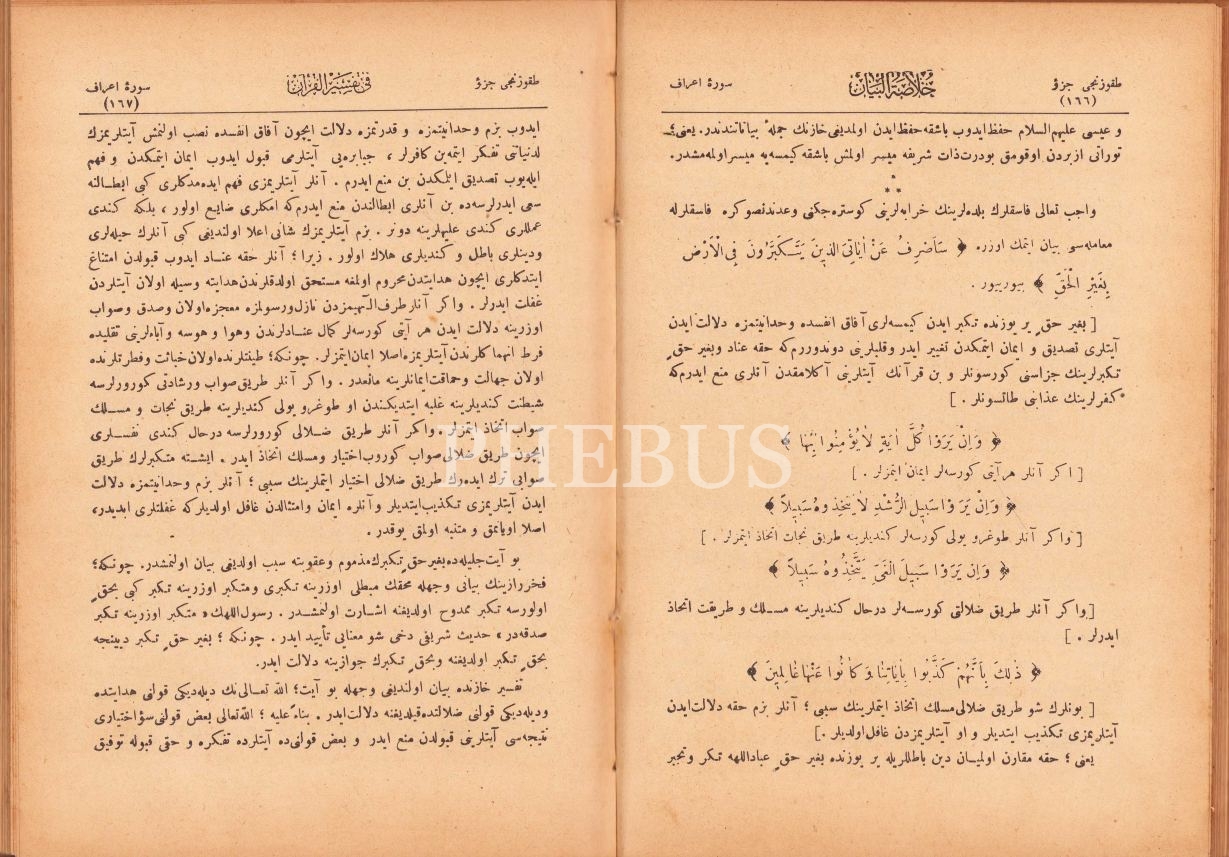 طقوزنجی جزؤ
خُلَاصَةُ الْبَيَان
سورهٔ اعراف
(١٦٦)
و عیسی علیهم السلام حفظ ایدوب باشقه حفظ ایدن اولمدیغی خازنك جملهٔ بیاناتندندر. یعنی؛
توراتی ازبردن اوقومق بودرت ذات شریفه میسر اولمش باشقه کیمسه یه میسر اولمه مشدر.
* * *
واجب تعالی فاسقلرك بلده لرینك خرابه لرینی کوستره جکنی وعدندنصوکره فاسقلرله
معامله سنی بیان ایتمك اوزره. ﴿ سَاَصْرِفُ عَنْ اٰيَاتِیَ الَّذِينَ يَتَكَبَّرُونَ فِی الْاَرْضِ
بِغَيْرِ الْحَقِّ ﴾ بیوریيور.
[ بغیر حق یر یوزنده تکبر ایدن کیمسه لری آفاق انفسده وحدانیتمزه دلالت ایدن
آیتلری تصدیق و ایمان ایتمکدن تغییر ایدر وقلبلرینی دوندوررم که حقه عناد وبغیر حق
تکبرلرینك جزاسنی کورسونلر و بن قرآنك آیتلرینی آکلامقدن آنلری منع ایدرم که
کفرلرینك عذابنی طاتسونلر. ]
﴿ وَاِنْ يَرَوْا كُلَّ اٰيَةٍ لَا يُؤْمِنُوا بِهَا ﴾
[ اکر آنلر هر آیتی کورسه لر ایمان ایتمزلر. ]
﴿ وَاِنْ يَرَوْا سَبِيلَ الرُّشْدِ لَا يَتَّخِذُوهُ سَبِيلًا ﴾
[ واکر آنلر طوغرو یولی کورسه لر کندیلرینه طریق نجات اتخاذ ایتمزلر. ]
﴿ وَاِنْ يَرَوْا سَبِيلَ الْغَیِّ يَتَّخِذُوهُ سَبِيلًا ﴾
[ واکر آنلر طریق ضلالتی کورسه لر درحال کندیلرینه مسلك و طریقت اتخاذ
ایدرلر. ]
﴿ ذٰلِكَ بِاَنَّهُمْ كَذَّبُوا بِاٰيَاتِنَا وَكَانُوا عَنْهَا غَافِلِينَ ﴾
[ بونلرك شو طریق ضلالی مسلك اتخاذ ایتملرینك سببی؛ آنلر بزم حقه دلالت ایدن
آیتلریمزی تکذیب ایتدیلر و او آیتلریمزدن غافل اولدیلر. ]
یعنی؛ حقه مقارن اولمیان دین باطللریله یر یوزنده بغیر حق عباداللهه تکبر وتجبر
سورهٔ اعراف
فی تَفْسيرِ الْقُرْآن
طقوزنجی جزؤ
(١٦٧)
ایدوب بزم وحدانیتمزه و قدرتمزه دلالت ایچون آفاق انفسده نصب اولنمش آیتلریمزك
لدنیاتی تفکر ایتمه ین کافرلر، جبابره یی آیتلرمی قبول ایدوب ایمان ایتمکدن و فهم
ایله یوب تصدیق ایلمکدن بن منع ایدرم. آنلر آیتلریمزی فهم ایده مدکلری کبی ابطالنه
سعی ایدرلرسه ده بن آنلری ابطالندن منع ایدرم که امکلری ضایع اولور، بلکه کندی
عمللری کندی علیهلرینه دونر. بزم آیتلریمزك شانی اعلا اولندیغی کبی آنلرك حیله لری
ودینلری باطل و کندیلری هلاك اولور. زیرا؛ آنلر حقه عناد ایدوب قبولدن امتناع
ایتدکلری ایچون هدایتدن محروم اولمغه مستحق اولدقلرندن هدایته وسیله اولان آیتلردن
غفلت ایدرلر. واکر آنلر طرف آلهیمزدن نازل ورسولمزه معجزه اولان وصدق وصواب
اوزرینه دلالت ایدن هر آیتی کورسه لر کمال عنادلرندن وهوا و هوسه وآباءلرینی تقلیده
فرط انهماکلرندن آیتلریمزه اصلا ایمان ایتمزلر. چونکه؛ طینتلرنده اولان خباثت وفطرتلرنده
اولان جهالت وحماقت ایمانلرینه مانعدر. واکر آنلر طریق صواب ورشادتی کورورلرسه
شیطنت کندیلرینه غلبه ایتدیکندن او طوغرو یولی کندیلرینه طریق نجات و مسلك
صواب اتخاذ ایتمزلر. واکر آنلر طریق ضلالی کورورلرسه درحال کندی نفسلری
ایچون طریق ضلالی صواب کوروب اختیار ومسلك اتخاذ ایدر. ایشته متکبرلرك طریق
صوابی ترك ایده رك طریق ضلالی اختیار ایتملرینك سببی؛ آنلر بزم وحدانیتمزه دلالت
ایدن آیتلریمزی تکذیب ایتدیلر وآنلره ایمان وامتثالدن غافل اولدیلر که غفلتلری ابدیدر،
اصلا اویانمق و متنبه اولمق یوقدر.
بو آیت جلیله ده بغیر حق تکبرك مذموم وعقوبته سبب اولدیغی بیان اولنمشدر. چونکه؛
فخر رازینك بیانی وجهله محقك مبطلی اوزرینه تکبری ومتکبر اوزرینه تکبر کبی بحق
اولورسه تکبر ممدوح اولدیغنه اشارت اولنمشدر. رسول اللهك « متکبر اوزرینه تکبر
صدقه در » حدیث شریفی دخی شو معنایی تأیید ایدر. چونکه؛ بغیر حق تکبر دیینجه
بحق تکبر اولدیغنه وبحق تکبرك جوازینه دلالت ایدر.
تفسیر خازنده بیان اولندیغی وجهله بو آیت؛ الله تعالی نك دیله دیکی قولنی هدایتده
ودیله دیکی قولنی ضلالتده قیلدیغنه دلالت ایدر. بناءً علیه؛ الله تعالی بعض قولنی سؤ اختیاری
نتیجه سی آیتلرینی قبولدن منع ایدر و بعض قولنی ده آیتلرده تفکره و حقی قبوله توفیق
PHEBUS